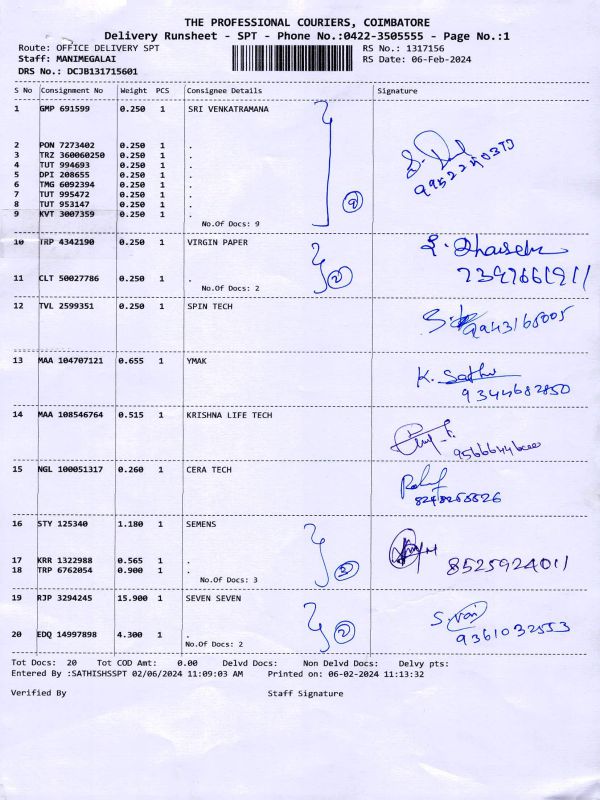 THE PROFESSIONAL COURIERS, COIMBATORE
Delivery Runsheet - SPT - Phone No.:0422-3505555 - Page No.:1
Route: OFFICE DELIVERY SPT RS No.: 1317156
Staff: MANIMEGALAI RS Date: 06-Feb-2024
DRS No.: DCJB131715601
S No Consignment No Weight PCS Consignee Details Signature
1 GMP 691599 0.250 1 SRI VENKATRAMANA
2 PON 7273402 0.250 1 .
3 TRZ 360060250 0.250 1 .
4 TUT 994693 0.250 1 .
5 DPI 208655 0.250 1 .
6 TMG 6092394 0.250 1 .
7 TUT 995472 0.250 1 .
8 TUT 953147 0.250 1 .
9 KVT 3007359 0.250 1 .
No.Of Docs: 9
9
10 TRP 4342190 0.250 1 VIRGIN PAPER
11 CLT 50027786 0.250 1 .
No.Of Docs: 2
2
12 TVL 2599351 0.250 1 SPIN TECH
13 MAA 104707121 0.655 1 YMAK
K. Sathu
9344682850
14 MAA 108546764 0.515 1 KRISHNA LIFE TECH
15 NGL 100051317 0.260 1 CERA TECH
16 STY 125340 1.180 1 SEMENS
8525924011
17 KRR 1322988 0.565 1 .
18 TRP 6762054 0.900 1 .
No.Of Docs: 3
3
19 RJP 3294245 15.900 1 SEVEN SEVEN
9361032553
20 EDQ 14997898 4.300 1 .
No.Of Docs: 2
2
Tot Docs: 20 Tot COD Amt: 0.00 Delvd Docs: Non Delvd Docs: Delvy pts:
Entered By :SATHISHSSPT 02/06/2024 11:09:03 AM Printed on: 06-02-2024 11:13:32
Verified By Staff Signature